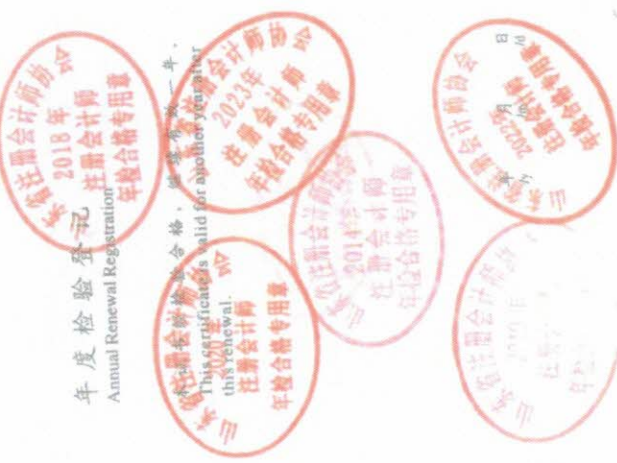 年度检验登记
Annual Renewal Registration
本证书经检验合格，继续有效一年。
This certificate is valid for another year after
this renewal.
年 月 日
/y /m /d
省注册会计师协会
2018 年
注册会计师
年检合格专用章
2023年
注册会计师
年检合格专用章
山东省注册会计师协会
2020 年
注册会计师
年检合格专用章
山东省注册会计师
2014
注册会计师
年检合格专用章
山东省注册会计师协会
2022年
注册会计师
年检合格专用章
山东省注册会计师协
注册
年检